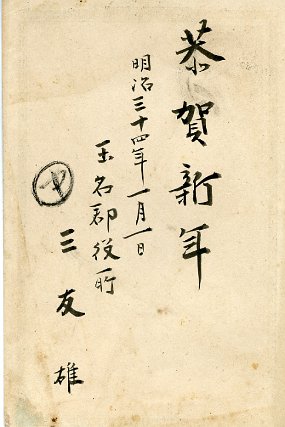 恭賀新年
明治三十四年一月一日
玉名郡役所
三友雄